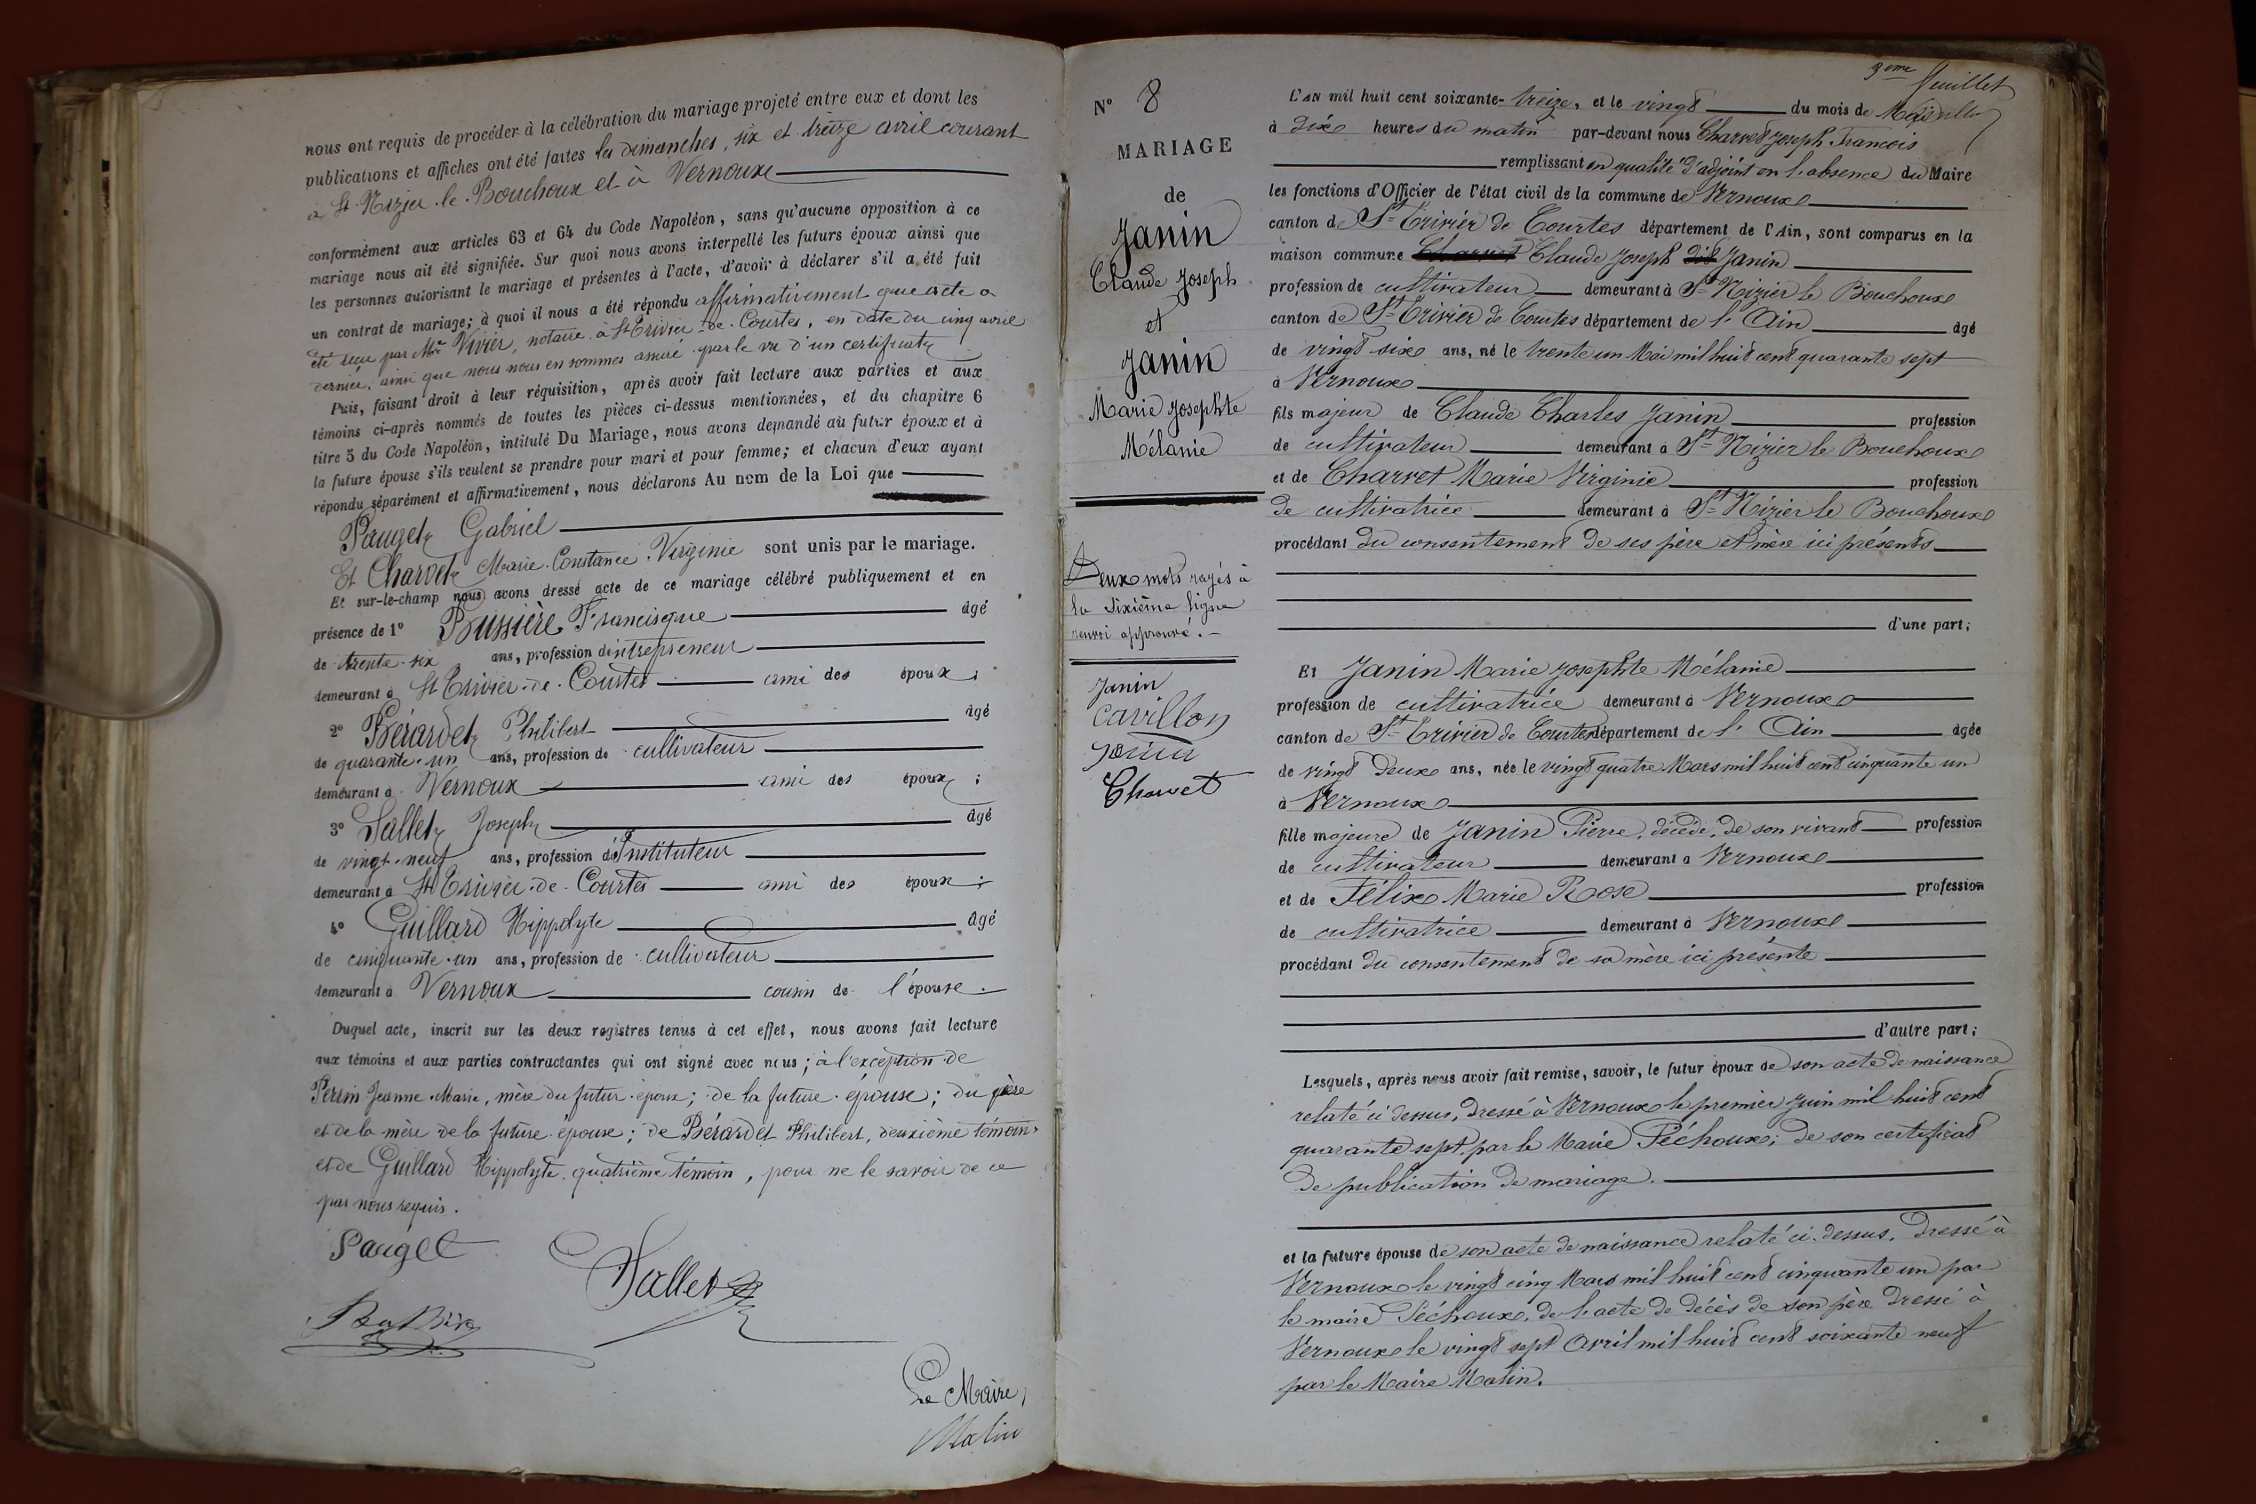 nous ont requis de procéder à la célébration du mariage projeté entre eux et dont les
publications et affiches ont été faites les dimanches, six et treize avril courant
à St-Nizier-le-Bouchoux et à Vernoux
conformément aux articles 63 et 64 du Code Napoléon, sans qu'aucune opposition à ce
mariage nous ait été signifiée. Sur quoi nous avons interpellé les futurs époux ainsi que
les personnes autorisant le mariage et présentes à l'acte, d'avoir à déclarer s'il a été fait
un contrat de mariage; à quoi il nous a été répondu affirmativement que acte a
été reçu par Me Vivier, notaire à St Trivier-de-Courtes, en date du cinq avril
dernier, ainsi que nous nous en sommes assuré par le vu d'un certificat
Puis, faisant droit à leur réquisition, après avoir fait lecture aux parties et aux
témoins ci-après nommés de toutes les pièces ci-dessus mentionnées, et du chapitre 6
titre 5 du Code Napoléon, intitulé Du Mariage, nous avons demandé au futur époux et à
la future épouse s'ils veulent se prendre pour mari et pour femme; et chacun d'eux ayant
répondu séparément et affirmativement, nous déclarons Au nom de la Loi que
Pauget Gabriel
Et Charvet Marie-Constance-Virginie sont unis par le mariage.
Et sur-le-champ nous avons dressé acte de ce mariage célébré publiquement et en
présence de 1° Bussière Francisque âgé
de trente-six ans, profession d'intrepreneur
demeurant à St Trivier-de-Courtes ami des époux;
2° Bérardet Philibert âgé
de quarante-un ans, profession de cultivateur
demeurant à Vernoux ami des époux;
3° Sallet Joseph âgé
de vingt-neuf ans, profession d'Instituteur
demeurant à St Trivier-de-Courtes ami des époux;
4° Guillard Hippolyte âgé
de cinquante-un ans, profession de cultivateur
demeurant à Vernoux cousin de l'épouse.
Duquel acte, inscrit sur les deux registres tenus à cet effet, nous avons fait lecture
aux témoins et aux parties contractantes qui ont signé avec nous; à l'exception de
Perrin Jeanne-Marie, mère du futur époux; de la future épouse; du père
et de la mère de la future épouse; de Bérardet Philibert, deuxième témoin,
et de Guillard Hippolyte, quatrième témoin, pour ne le savoir de ce
par nous requis.
Pauget
Sallet
Le Maire,
Matin
3eme feuillet
N° 8
MARIAGE
de
Janin
Claude Joseph
et
Janin
Marie Josephte
Mélanie
Deux mots rayés à
la sixième ligne
renvoi approuvé.
Janin
Cavillon
Janin
Charvet
L'AN mil huit cent soixante-treize, et le vingt du mois de Mai
à dix heures du matin par-devant nous Charvet Joseph Francois
remplissant en qualité d'adjoint en l'absence du Maire
les fonctions d'Officier de l'état civil de la commune de Vernoux
canton de St Trivier de Courtes département de l'Ain, sont comparus en la
maison commune Charvet Claude Joseph dit Janin
profession de cultivateur demeurant à St Nizier le Bouchoux
canton de St Trivier de Courtes département de l'Ain âgé
de vingt six ans, né le trente un Mai mil huit cent quarante sept
à Vernoux
fils majeur de Claude Charles Janin profession
de cultivateur demeurant à St Nizier le Bouchoux
et de Charvet Marie Virginie profession
de cultivatrice demeurant à St Nizier le Bouchoux
procédant du consentement de ses père et mère ici présents
d'une part;
Et Janin Marie Josephte Mélanie
profession de cultivatrice demeurant à Vernoux
canton de St Trivier de Courtes département de l'Ain âgée
de vingt deux ans, née le vingt quatre Mars mil huit cent cinquante un
à Vernoux
fille majeure de Janin Pierre, décédé, de son vivant profession
de cultivateur demeurant à Vernoux
et de Félix Marie Rose profession
de cultivatrice demeurant à Vernoux
procédant du consentement de sa mère ici présente
d'autre part;
Lesquels, après nous avoir fait remise, savoir, le futur époux de son acte de naissance
relaté ci dessus, dressé à Vernoux le premier Juin mil huit cent
quarante sept par le Maire Péchoux; de son certificat
de publication de mariage.
et la future épouse de son acte de naissance relaté ci-dessus, dressé à
Vernoux le vingt cinq Mars mil huit cent cinquante un par
le maire Péchoux, de l'acte de décès de son père dressé à
Vernoux le vingt sept Avril mil huit cent soixante neuf
par le Maire Matin.